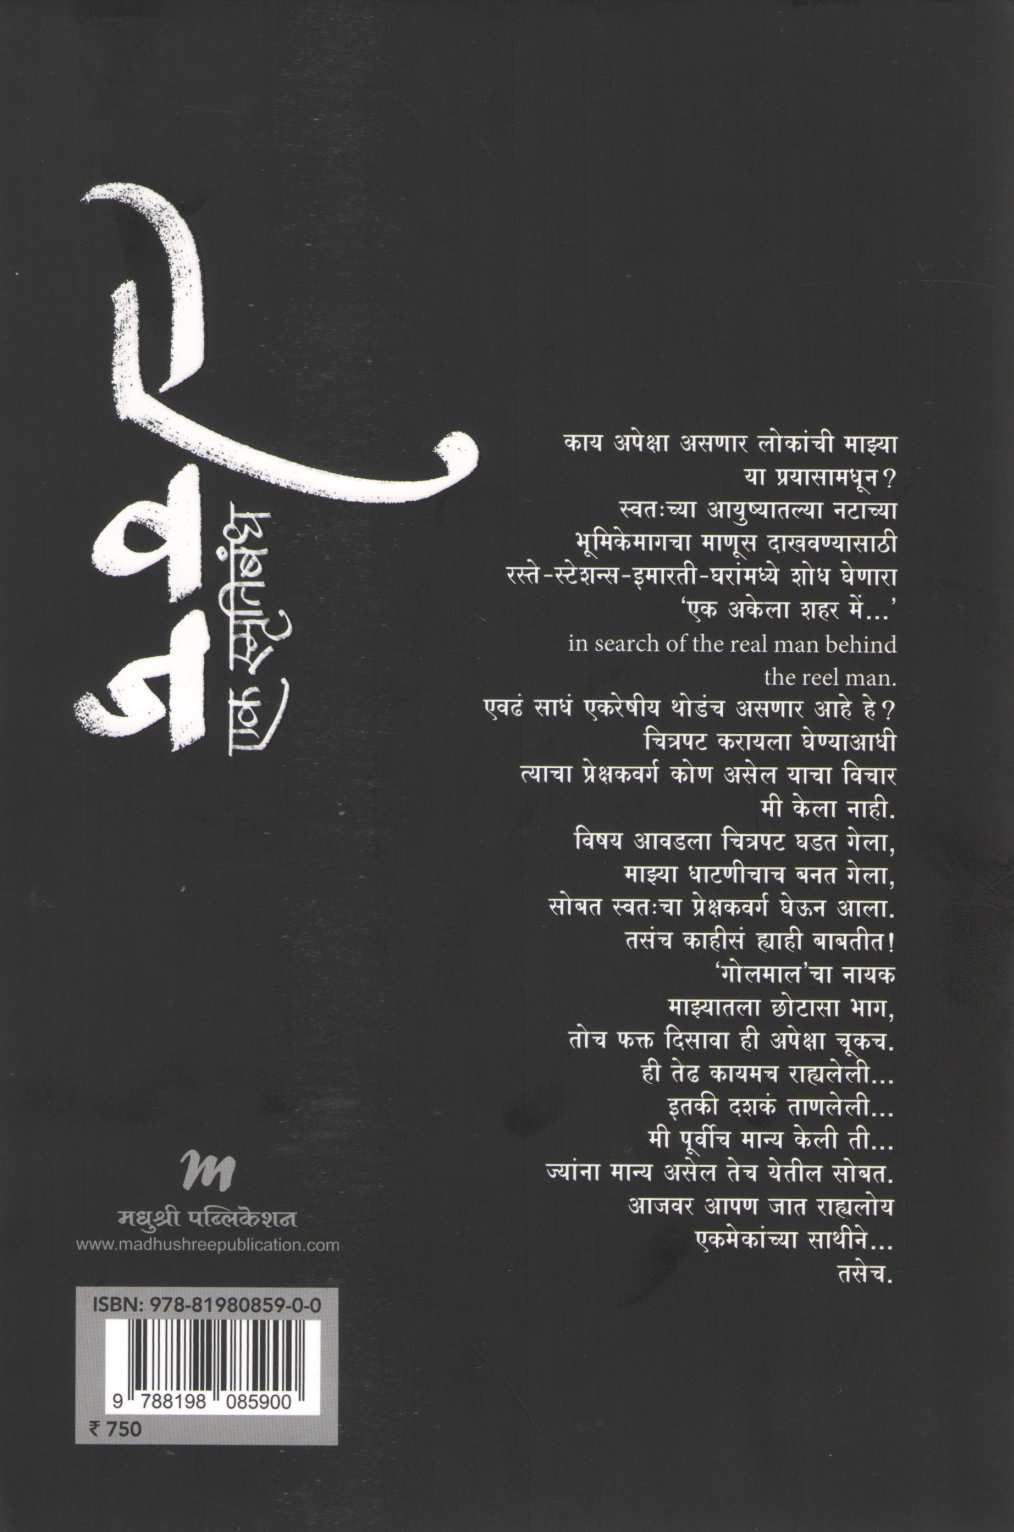 ऐवज
एक स्मृतिबंध
काय अपेक्षा असणार लोकांची माझ्या
या प्रयासामधून?
स्वतःच्या आयुष्यातल्या नटाच्या
भूमिकेमागचा माणूस दाखवण्यासाठी
रस्ते-स्टेशन्स-इमारती-घरांमध्ये शोध घेणारा
'एक अकेला शहर में...'
in search of the real man behind
the reel man.
एवढं साधं एकरेषीय थोडंच असणार आहे हे?
चित्रपट करायला घेण्याआधी
त्याचा प्रेक्षकवर्ग कोण असेल याचा विचार
मी केला नाही.
विषय आवडला चित्रपट घडत गेला,
माझ्या धाटणीचाच बनत गेला,
सोबत स्वतःचा प्रेक्षकवर्ग घेऊन आला.
तसंच काहीसं ह्याही बाबतीत!
'गोलमाल'चा नायक
माझ्यातला छोटासा भाग,
तोच फक्त दिसावा ही अपेक्षा चूकच.
ही तेढ कायमच राह्यलेली...
इतकी दशकं ताणलेली...
मी पूर्वीच मान्य केली ती...
ज्यांना मान्य असेल तेच येतील सोबत.
आजवर आपण जात राह्यलोय
एकमेकांच्या साथीने...
तसेच.
m
मधुश्री पब्लिकेशन
www.madhushreepublication.com
ISBN: 978-81980859-0-0
9 788198 085900
₹ 750